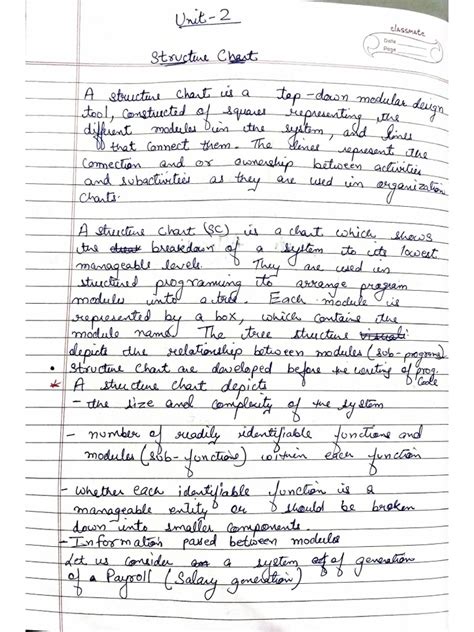 Unit-2
classmate
Date
Page
Structure Chart
A structure chart is a top-down modular design
tool, constructed of squares representing the
different modules in the system, and lines
that connect them. The lines represent the
connection and or ownership between activities
and subactivities as they are used in organization
charts.
A structure Chart (SC) is a chart which shows
the breakdown of a system to its lowest
manageable levels. They are used in
structured programing to arrange program
modules into a tree. Each module is
represented by a box, which contains the
module name. The tree structure visuali
depicts the relationship between modules (sub-programs)
• Structure Chart are developed before the writing of prog.
Code
* A structure chart depicts
- the size and complexity of the system
- number of readily identifiable functions and
modules (sub-functions) within each function
- whether each identifiable function is a
manageable entity or should be broken
down into smaller components.
- Information passed between modules
Let us consider a system of generation
of a Payroll (Salary generation)